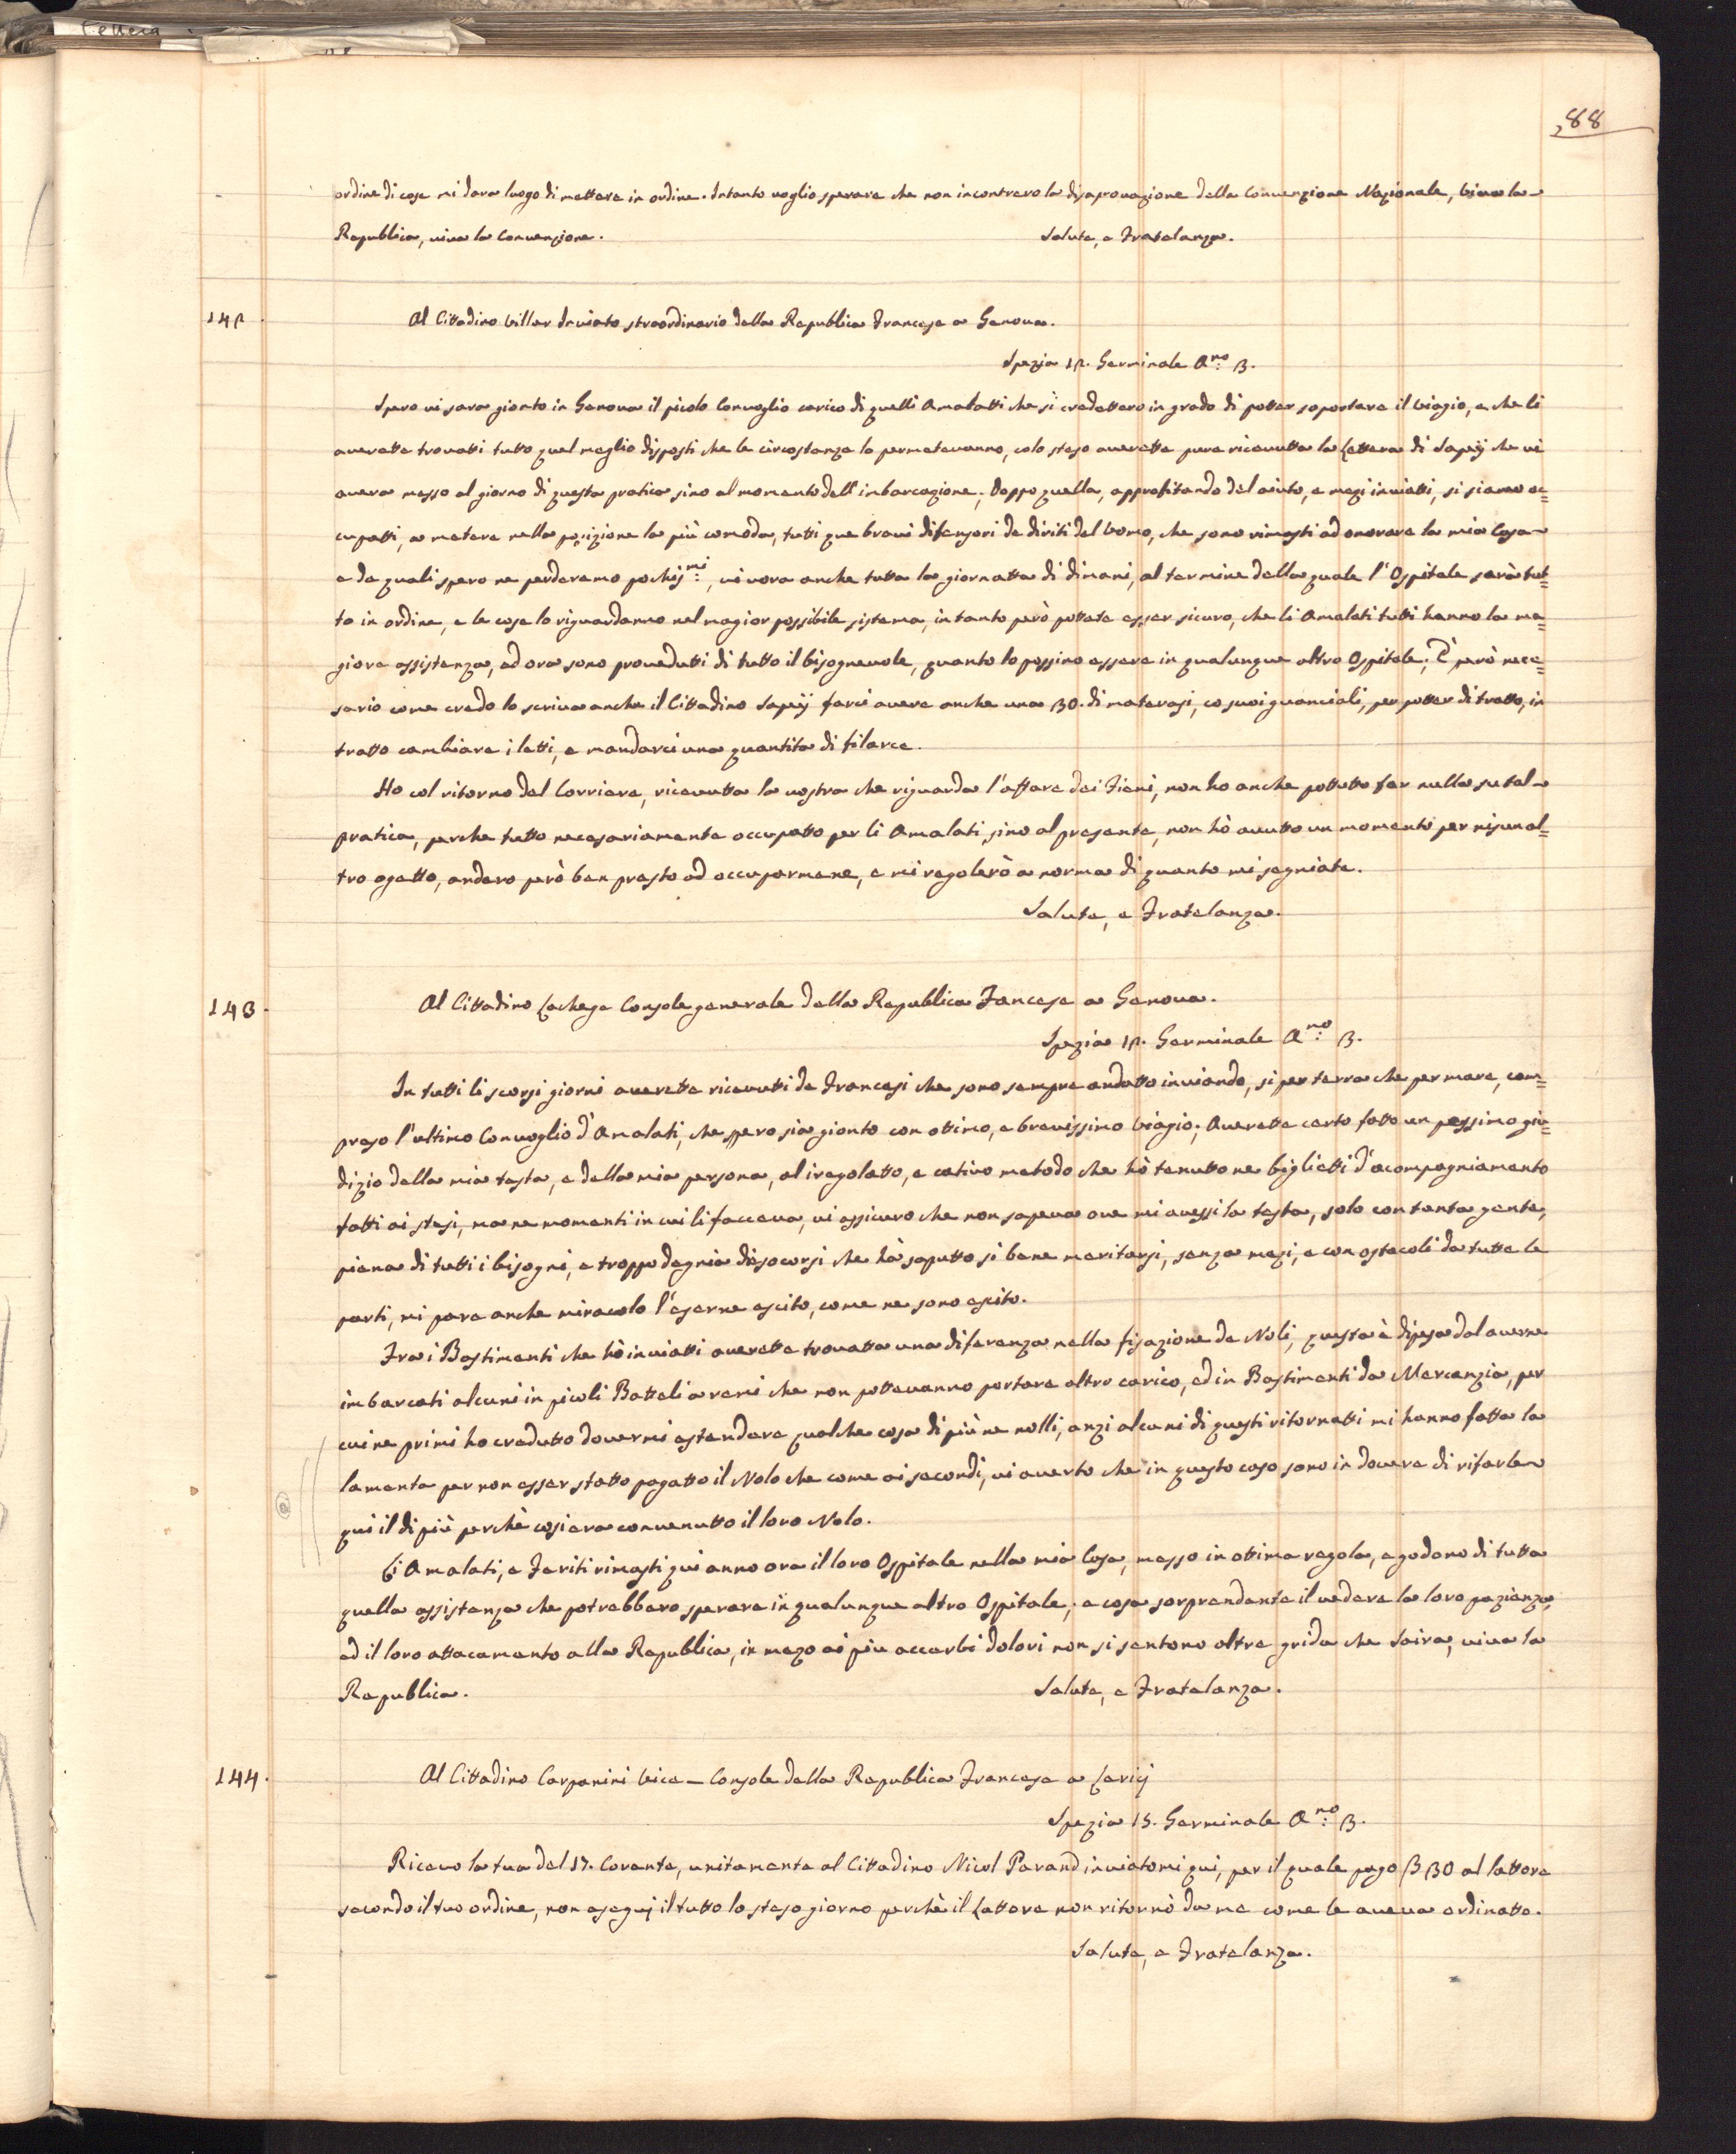 88
ordine di cose mi dara luogo di mettere in ordine. Intanto voglio sperare che non incontrero la disaprovazione della Convenzione Nazionale, viva la
Republica, viva la Convenzione. Salute, e Fratelanza.
142. Al Cittadino Villar Inviato straordinario della Republica Francese a Genova.
Spezia 12. Germinale A.no 3.
Spero vi sara gionto in Genova il picolo Convoglio carico di quelli Amalatti che si credettero in grado di potter soportare il viagio, e che li
averette trovatti tutto quel meglio disposti che le circostanze lo permetevanno, colo steso averette pure ricevutta la Lettera di Sapej che vi
avera messo al giorno di questa pratica sino al momento dell'imbarcazione; Doppo quella, approfitando del aiuto, e mezi inviatti, si siamo oc=
cupatti, a metere nella posizione la più comoda, tutti que bravi difensori de diriti del Uomo, che sono rimasti ad onorare la mia Casa
e de quali spero ne perderemo pochis.mi, vi vora anche tutta la giornatta di dimani, al termine della quale l'Ospitale sarà tut=
to in ordine, e le cose lo riguardanno nel magior possibile sistema, in tanto però pottete esser sicuro, che li Amalati tutti hanno la ma=
giore assistenza, ad ora sono provedutti di tutto il bisognevole, quanto lo possino essere in qualunque altro Ospitale; È però nece=
sario come credo lo scriva anche il Cittadino Sapej farci avere anche una 30. di materasi, co suoi guanciali, per potter di tratto, in
tratto cambiare i letti, e mandarci una quantita di filarce.
Ho col ritorno del Corriere, ricevutta la vostra che riguarda l'affare dei Fieni, non ho anche pottutto far nulla su tal
pratica, perche tutto necesariamente occupatto per li Amalati, sino al presente, non hò avutto un momento per nisun al=
tro ogetto, andero però ben presto ad occuparmene, e mi regolerò a norma di quanto mi segniate.
Salute, e Fratelanza.
143. Al Cittadino Lachege Console generale della Republica Fancese a Genova.
Spezia 12. Germinale A.no 3.
In tutti li scorsi giorni averette ricevutti de Francesi che sono sempre andatto inviando, si per terra che per mare, com=
preso l'ultimo Convoglio d'Amalati, che spero sia gionto con ottimo, e brevissimo viagio; Averette certo fatto un pessimo giu=
dizio della mia testa, e della mia persona, al iregolatto, e cativo metodo che hò tenutto ne biglietti d'acompagniamento
fatti ai stesi, ma ne momenti in cui li facceva, vi assicuro che non sapeva ove mi avessi la testa, solo con tanta gente,
piena di tutti i bisogni, e troppo degnia di socorsi che hà saputto sì bene meritarsi, senza mezi, e con ostacoli da tutte le
parti, mi pare anche miracolo l'eserne escito, come ne sono escito.
Fra i Bastimenti che hò inviatti averette trovatta una diferenza nella fisazione de Noli, questa è dipesa dal averne
imbarcati alcuni in picoli Batteli a remi che non pottevanno portare altro carico, ed in Bastimenti da Mercanzia, per
cui ne primi ho credutto dovermi estendere qualche cosa di più ne nolli, anzi alcuni di questi ritornatti mi hanno fatta la
lamenta per non esser statto pagatto il Nolo che come ai secondi, vi averto che in questo caso sono in dovere di rifarle
qui il di più perchè cosi era convenutto il loro Nolo.
Li Amalati, e Feriti rimasti qui anno ora il loro Ospitale nella mia Casa, messo in ottima regola, e godono di tutta
quella assistenza che potrebbero sperare in qualunque altro Ospitale; e cosa sorprendente il vedere la loro pazienza,
ed il loro attacamento alla Republica, in mezo ai piu accerbi dolori non si sentono altre grida che Saira, viva la
Republica. Salute, e Fratelanza.
144. Al Cittadino Carpanini Vice-Console della Republica Francese a Lerici
Spezia 15. Germinale A.no 3.
Ricevo la tua del 13. Corente, unitamente al Cittadino Nicol Parand inviatomi qui, per il quale pago 30 al lattore
secondo il tuo ordine, non eseguj il tutto lo steso giorno perchè il Lattore non ritornò da me come le aveva ordinatto.
Salute, e Fratelanza.